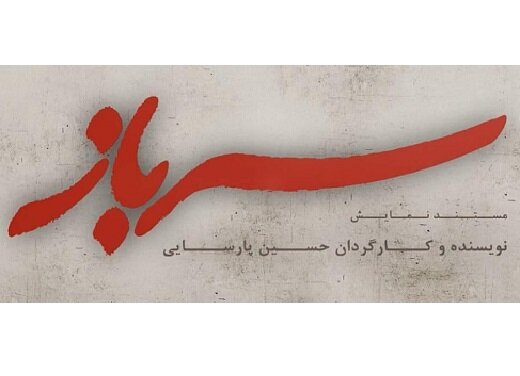 سرباز
مستند نمایش
نویسنده و کارگردان حسین پارسایی